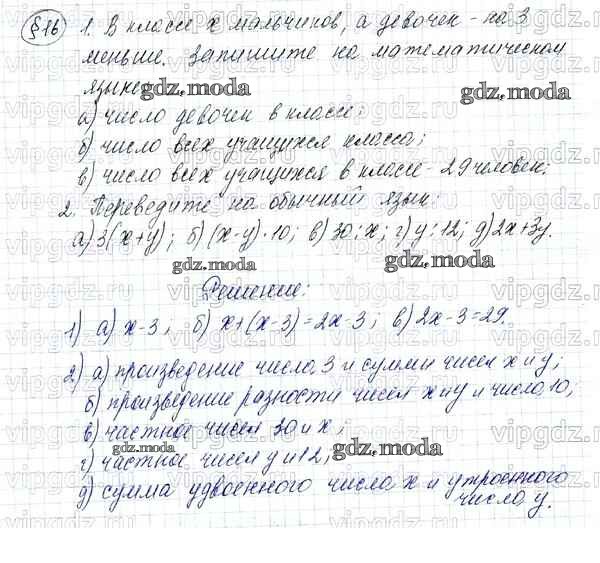 § 16 1. В классе x мальчиков, а девочек - на 3
меньше. Запишите на математическом
языке
gdz.moda gdz.moda
а) число девочек в классе;
б) число всех учащихся класса;
в) число всех учащихся в классе - 29 человек:
2. Переведите на обычный язык:
а) 3(x+y); б) (x-y)·10; в) 30:x; г) y:12; д) 2x+3y.
gdz.moda gdz.moda
Решение:
1) а) x-3; б) x+(x-3)=2x-3; в) 2x-3=29.
2) а) произведение числа 3 и суммы чисел x и y;
б) произведение разности чисел x и y и числа 10;
в) частное чисел 30 и x;
gdz.moda gdz.moda
г) частное чисел y и 12;
д) сумма удвоенного числа x и утроенного
числа y.